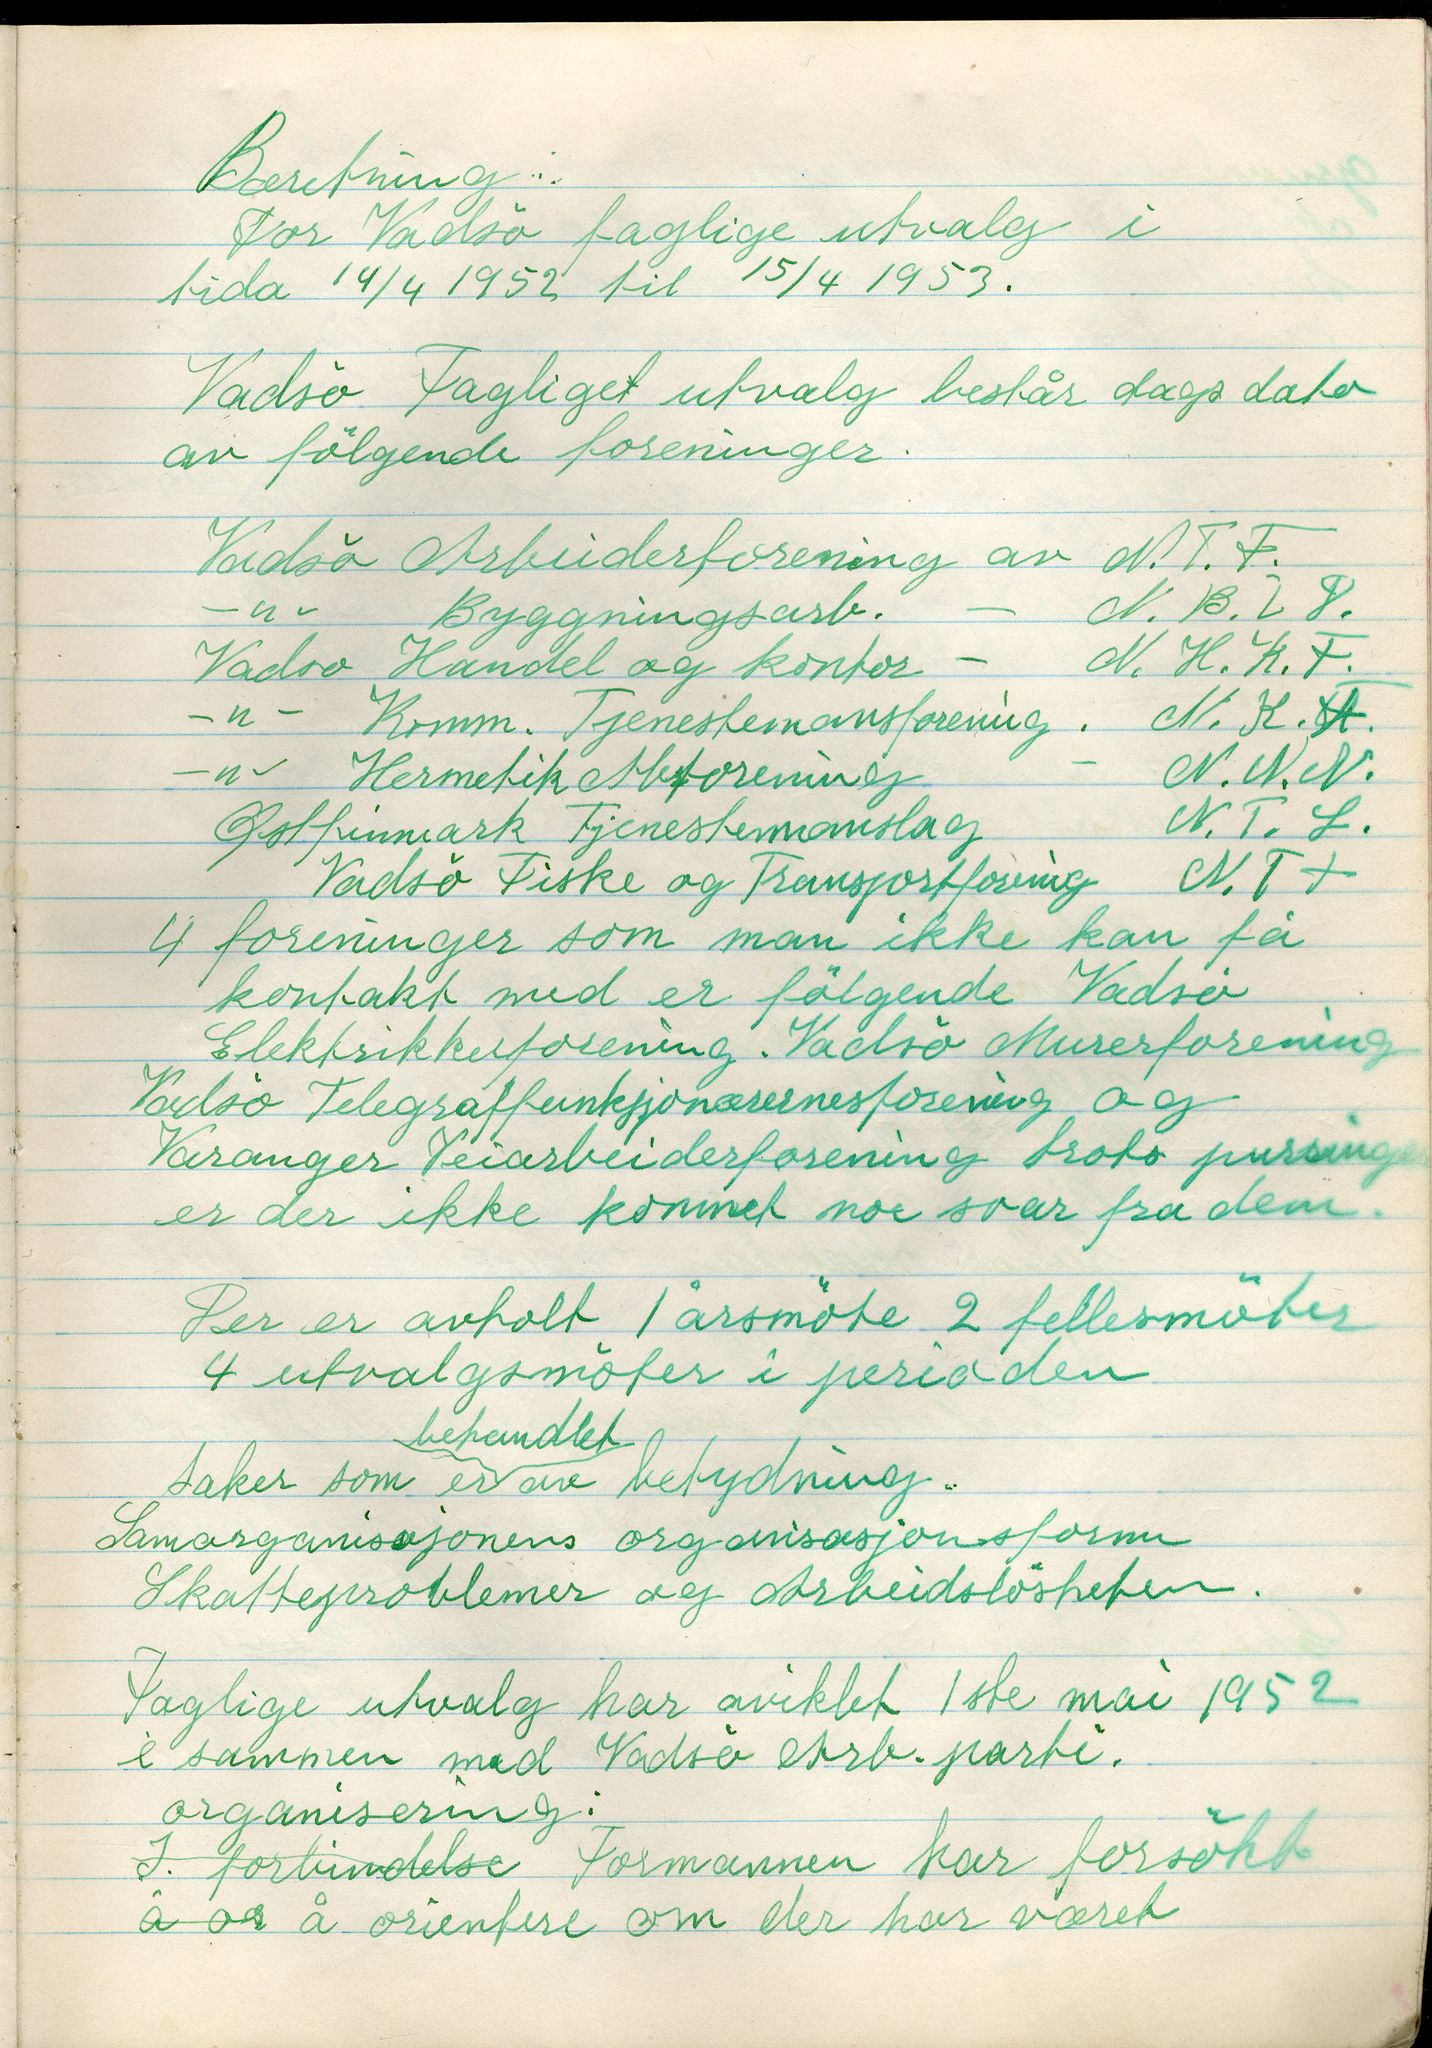 Beretning:
For Vadsö faglige utvalg i
tida 14/4 1952 til 15/4 1953.
Vadsö Fagliget utvalg består dags dato
av fölgende foreninger.
Vadsö Arbeiderforening av N.T.F.
-"- Byggningsarb. - N. B. I F.
Vadsö Handel og kontor - N. H. K. F.
-"- Komm. Tjenestemansforening. N. K. F.
-"- Hermetik Arbforening - N. N. N.
Østfinnmark Tjenestemanslag N. T. L.
Vadsö Fiske og Transportforening N. T F
4 foreninger som man ikke kan få
kontakt med er fölgende Vadsö
Elektrikkerforening. Vadsö Murerforening
Vadsö Telegraffunksjonærernesforening og
Varanger Veiarbeiderforening trots purringer
er der ikke kommet noe svar fra dem.
Der er avholt 1 årsmöte 2 fellesmöter
4 utvalgsmöter i perioden
behandlet
saker som er av betydning..
Samorganisasjonens organisasjonsform
Skatteproblemer og Arbeidslösheten.
Faglige utvalg har aviklet 1ste mai 1952
i sammen med Vadsö Arb. parti.
organisering:
I. forbindelse Formannen har forsökt
å or å orientere om der har været